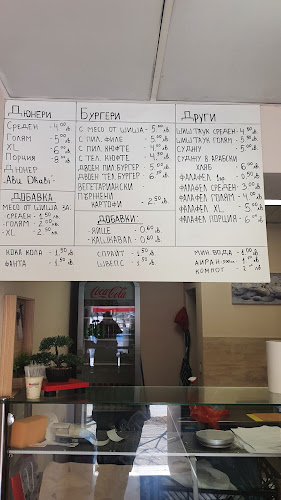 Дюнери
Среден - 4.00 лв
Голям - 5.00 лв
XL - 6.00 лв
Порция - 8.00 лв
Дюнер
„Abu Dhabi"-
Добавка
месо от шиша за:
-Среден - 1.50 лв
-Голям - 2.00 лв
-XL - 2.50 лв
Кока Кола - 1.50 лв
Фанта - 1.50 лв
Бургери
с месо от шиша - 5.00 лв
с пил. филе - 5.00 лв
с пил. кюфте - 4.50 лв
с тел. кюфте - 4.50 лв
Двоен пил. бургер - 5.00 лв
Двоен тел. бургер - 6.00 лв
Вегетариански -
Пържени
картофи - 2.50 лв
Добавки:
-яйце - 0.60 лв
-кашкавал - 0.60 лв
Спрайт - 1.50 лв
Швепс - 1.50 лв
Други
Шиш таук среден - 4.50 лв
Шиш таук голям - 5.50 лв
Суджу - 5.00 лв
Суджу в арабски
хляб - 6.00 лв
Фалафел 1бр. - 0.50 лв
Фалафел среден - 3.00 лв
Фалафел голям - 4.00 лв
Фалафел XL - 5.00 лв
Фалафел порция - 6.00 лв
Мин. вода - 1.00 лв
Айран - 1.00 лв
Компот - 2.00 лв
Coca-Cola